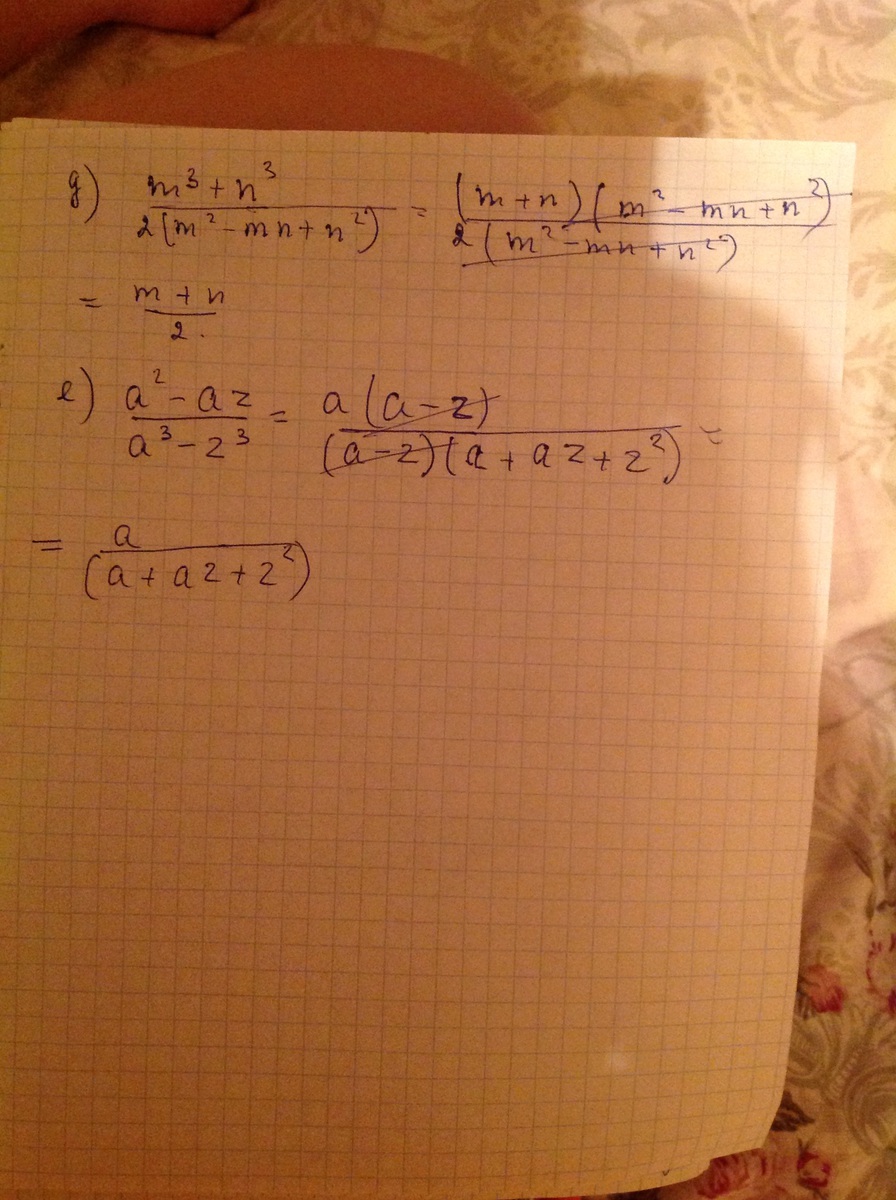 д) m³ + n³ / 2(m² - mn + n²) = (m + n)(m² - mn + n²) / 2(m² - mn + n²)
= m + n / 2.
е) a² - az / a³ - z³ = a(a - z) / (a - z)(a + az + z²) =
= a / (a + az + z²)